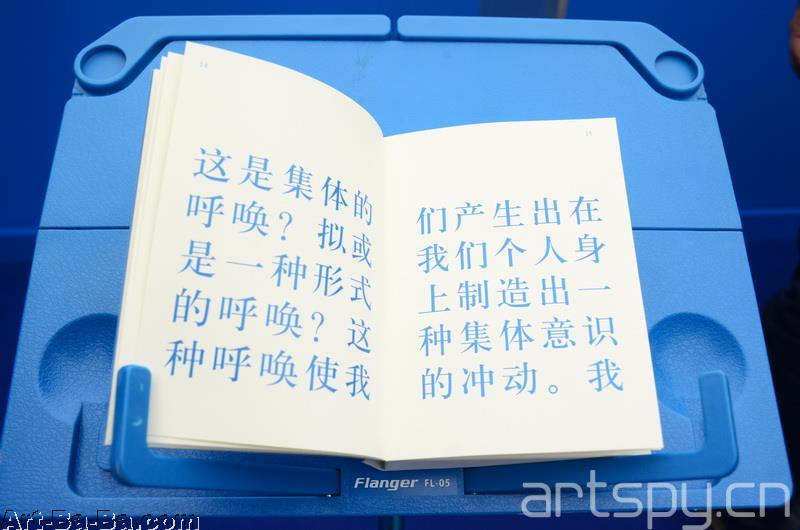 14
这是集体的
呼唤？拟或
是一种形式
的呼唤？这
种呼唤使我
15
们产生出在
我们个人身
上制造出一
种集体意识
的冲动。我
Flanger FL-05
artspy.cn
Art-Ba-Ba.com